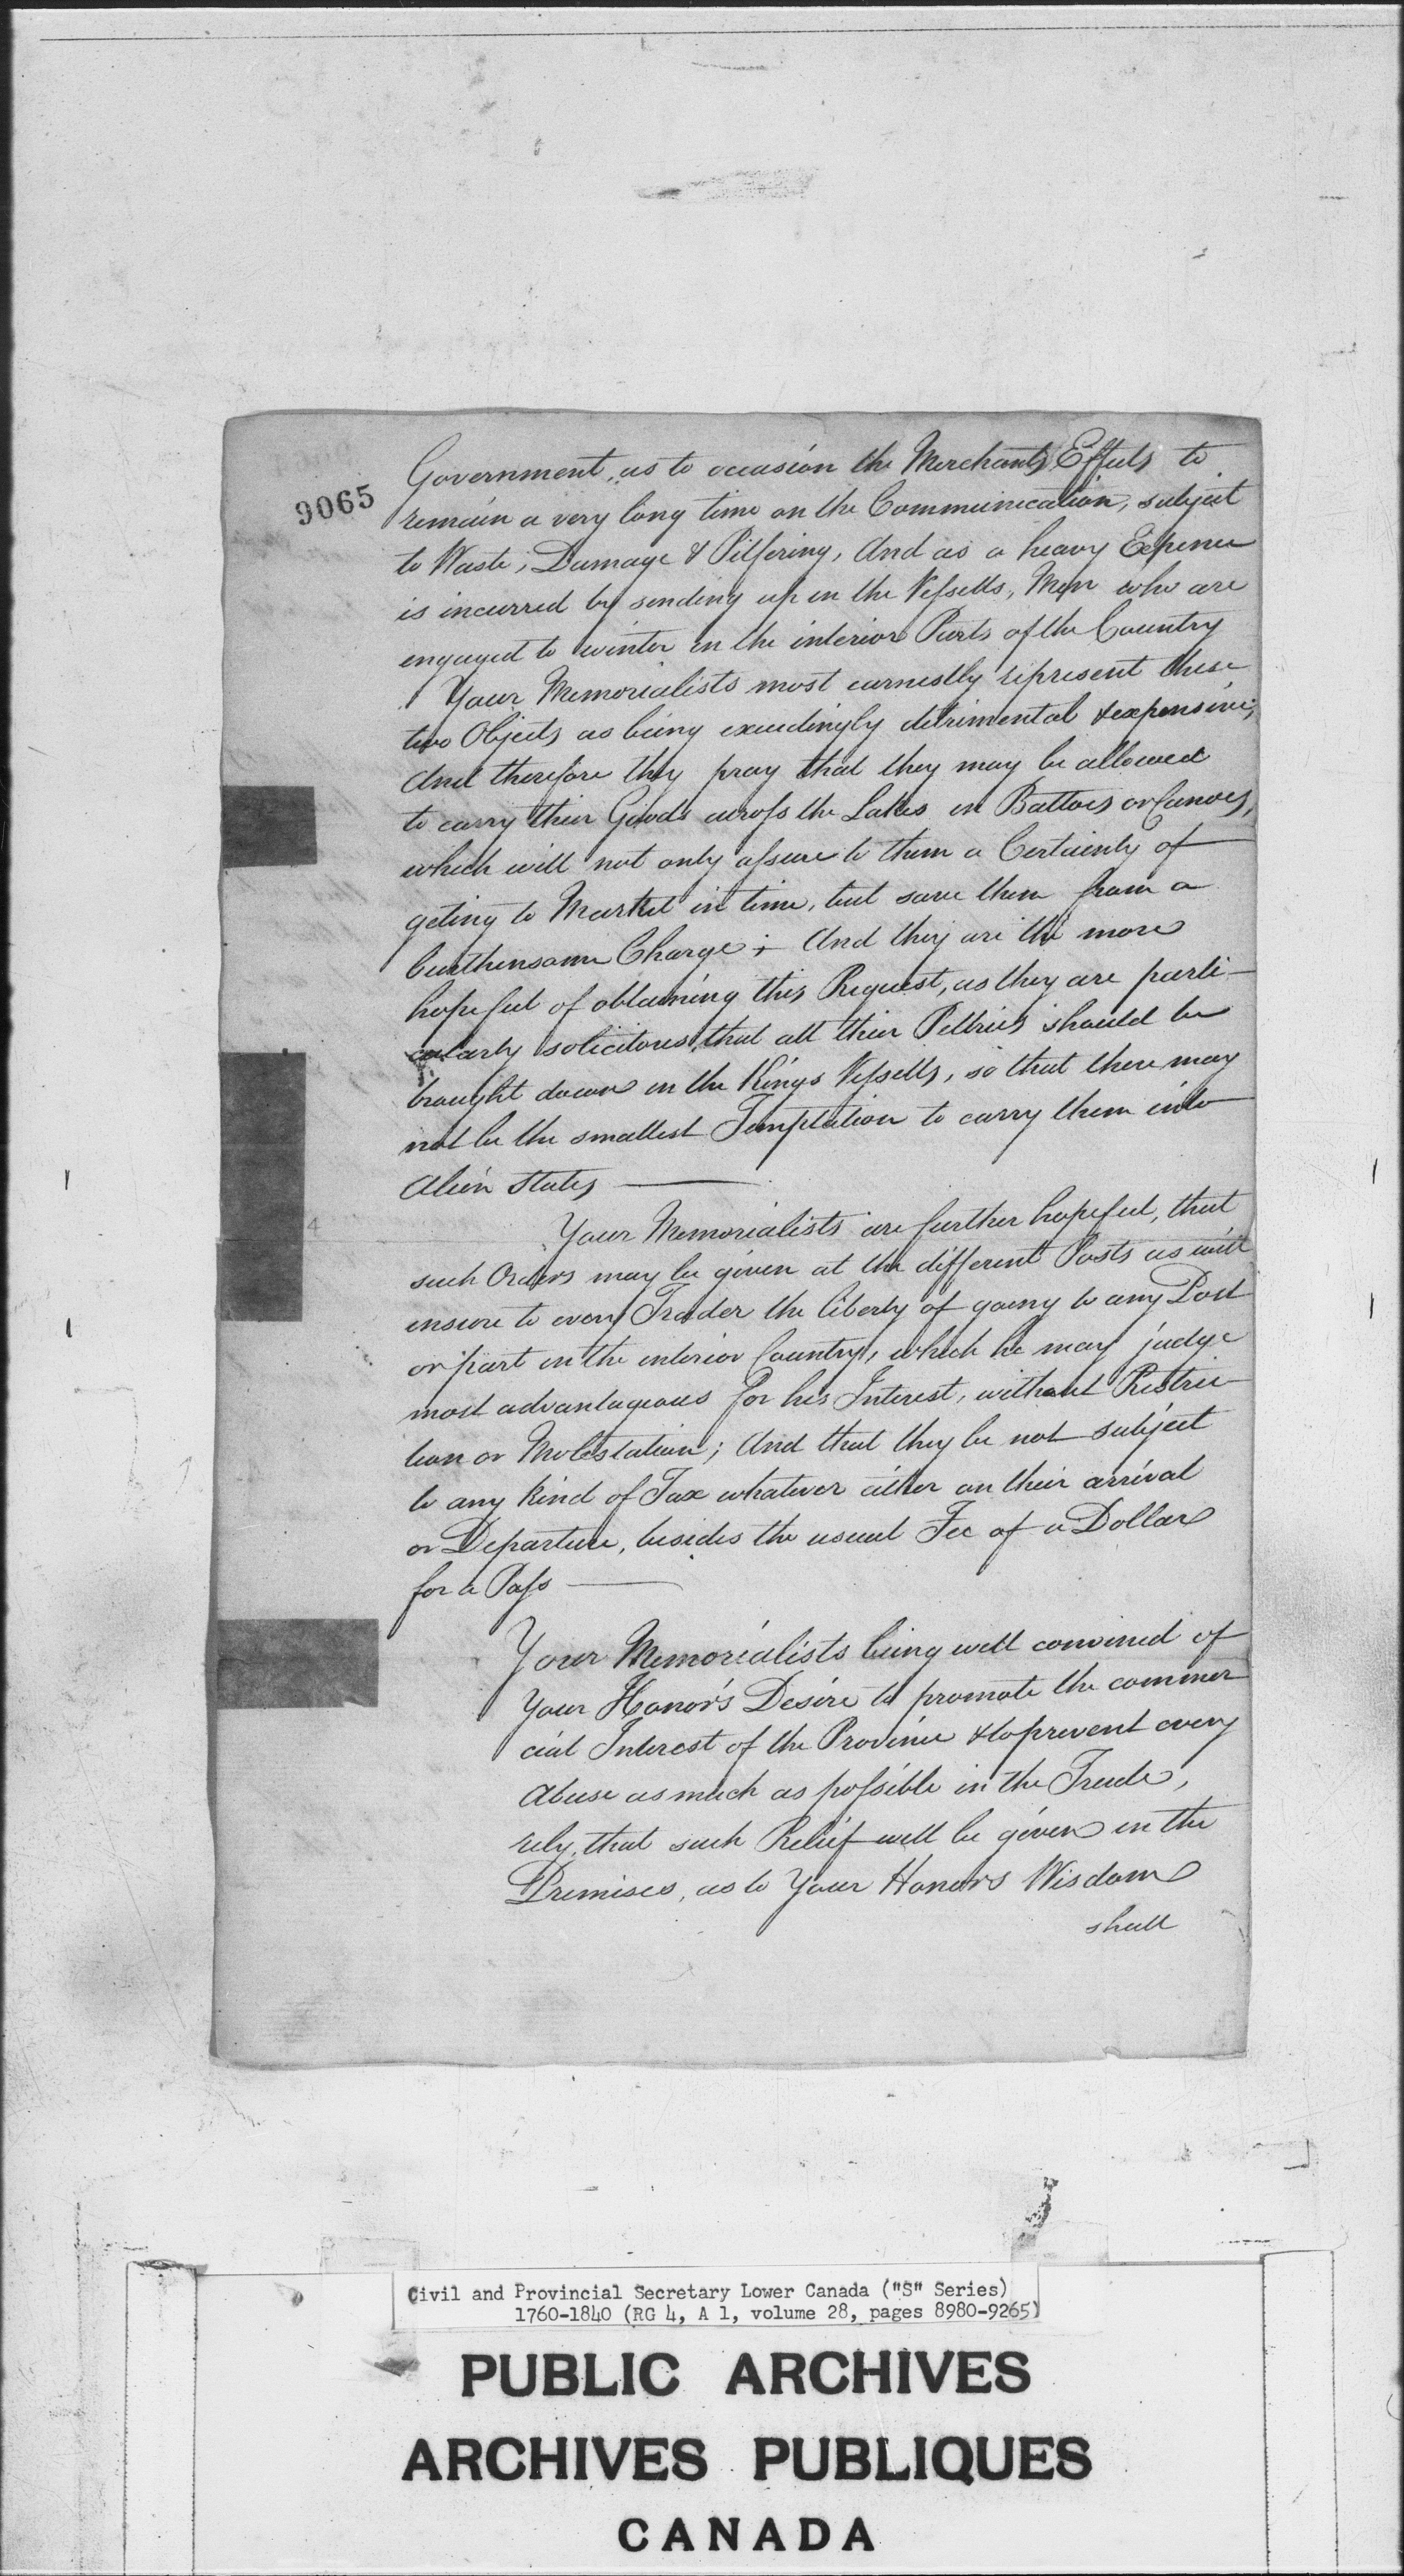 9065
Government, as to occasion the Merchants Effects to
remain a very long time on the Communication, subject
to Waste, Damage & Pilfering, And as a heavy Expence
is incurred by sending up in the Vessells, Men who are
engaged to winter in the interior Parts of the Country
Your Memorialists most earnestly represent these
two Objects as being exceedingly detrimental & expensive;
And therefore they pray that they may be allowed
to carry their Goods across the Lakes in Battoes or Canoes,
which will not only assure to them a Certainty of
geting to Market in time, but save them from a
burthensome Charge; And they are the more
hopeful of obtaining this Request, as they are parti-
cularly solicitous, that all their Peltries should be
brought down in the Kings Vessells, so that there may
not be the smallest Temptation to carry them into
Alien States
4
Your Memorialists are further hopeful, that
such Orders may be given at the different Posts as will
ensure to every Trader the liberty of going to any Post
or part in the interior Country, which he may judge
most advantageous for his Interest, without Restric-
tion or Molestation; And that they be not subject
to any kind of Tax whatever either on their arrival
or Departure, besides the usual Fee of a Dollar
for a Pass
Your Memorialists being well convinced of
Your Honor's Desire to promote the commer
cial Interest of the Province & to prevent every
Abuse as much as possible in the Trade,
rely, that such Relief will be given in the
Premises, as to Your Honors Wisdom
shall
Civil and Provincial Secretary Lower Canada ("S" Series)
1760-1840 (RG 4, A 1, volume 28, pages 8980-9265)
PUBLIC ARCHIVES
ARCHIVES PUBLIQUES
CANADA